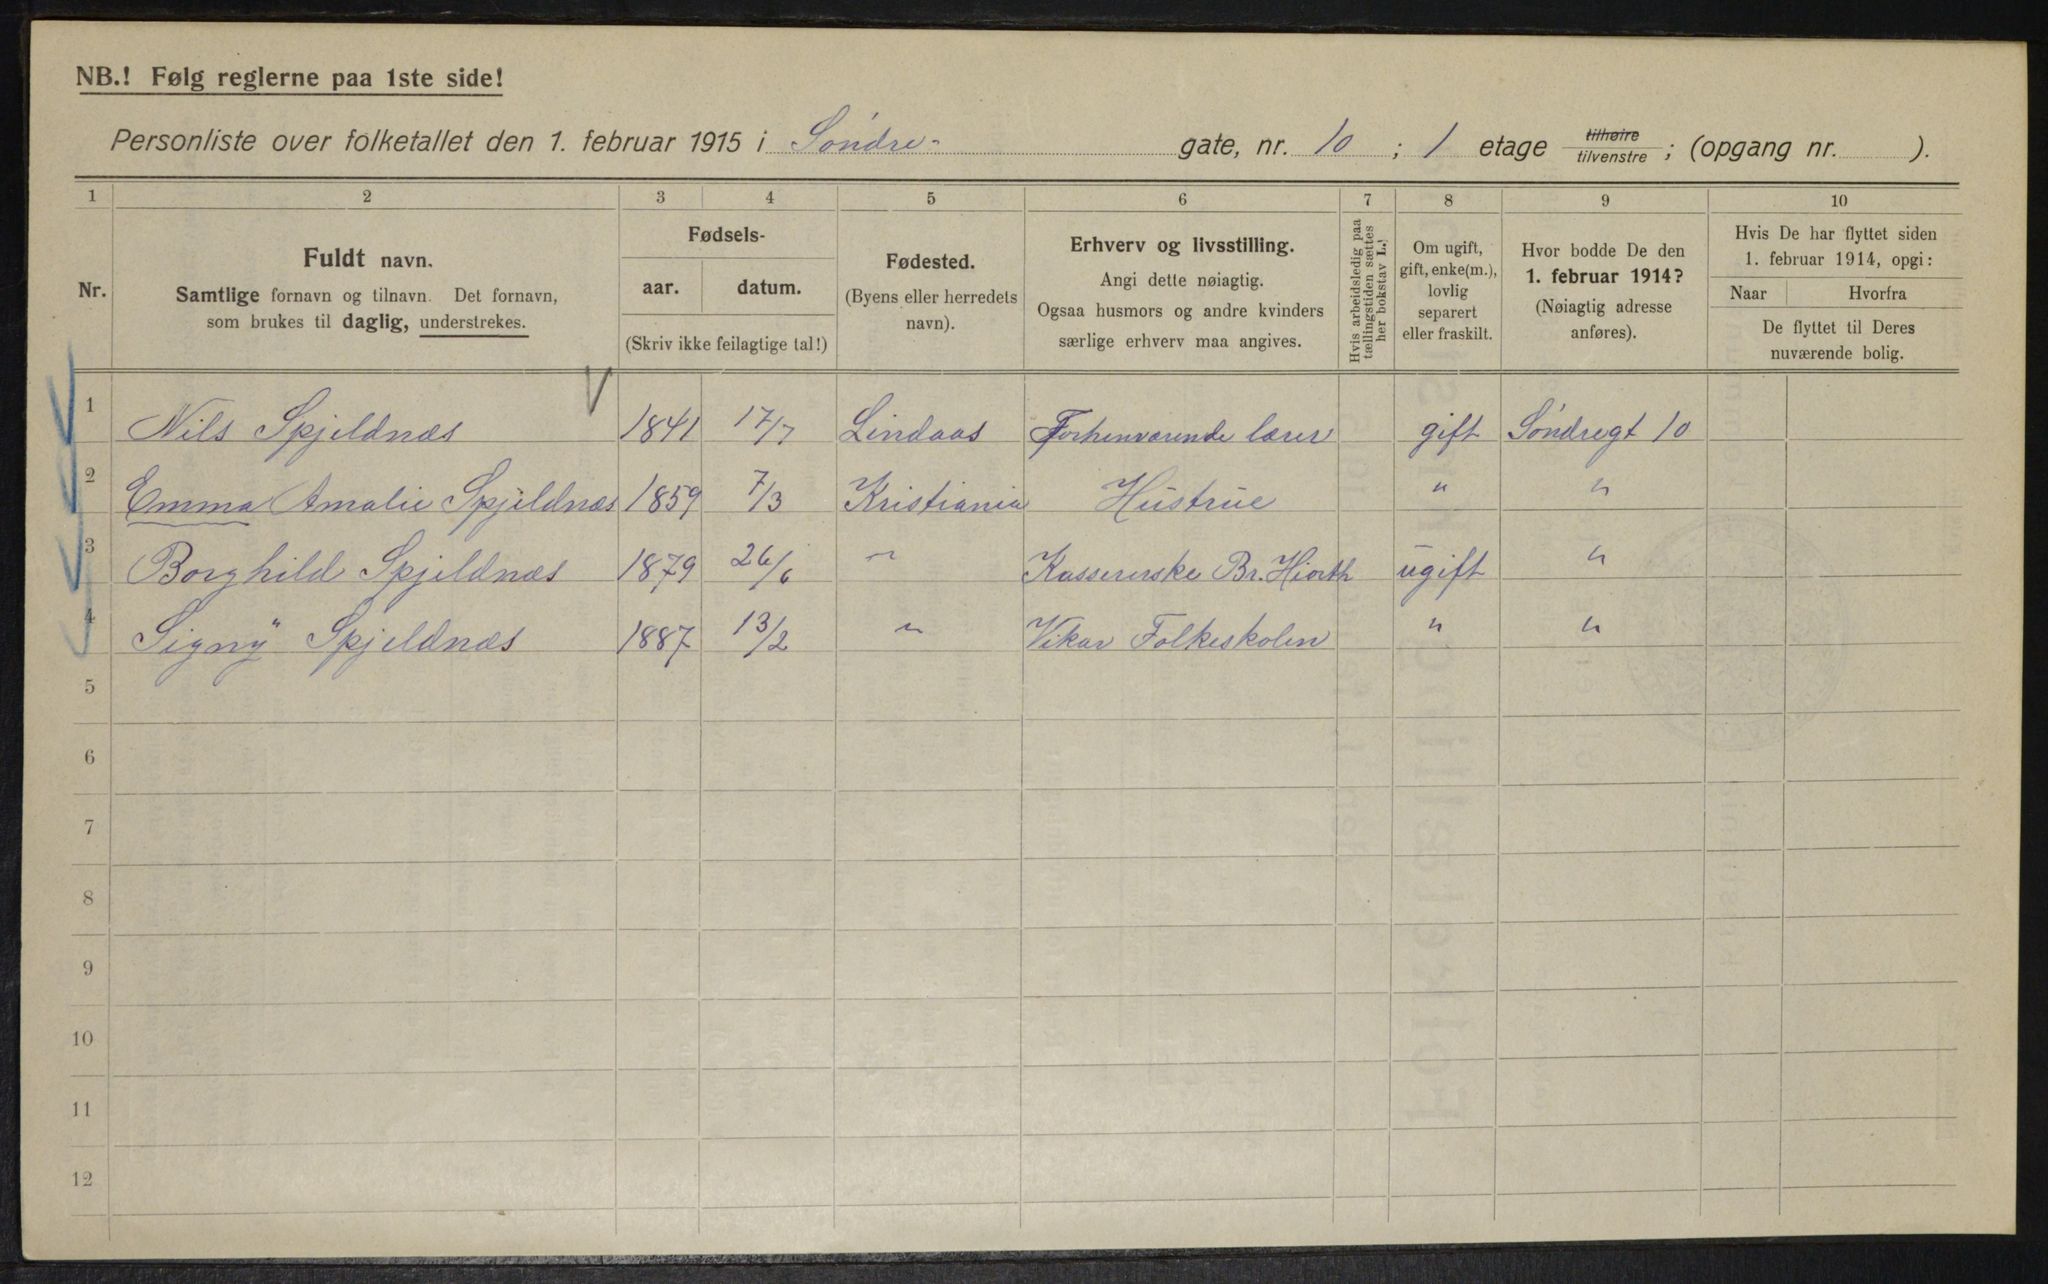 NB.! Følg reglerne paa 1ste side!
Personliste over folketallet den 1. februar 1915 i Søndre- gate, nr. 10 ; 1 etage tilhøire tilvenstre ; (opgang nr. ).
1 2 3 4 5 6 7 8 9 10
Nr.
Fuldt navn.
Samtlige fornavn og tilnavn. Det fornavn,
som brukes til daglig, understrekes.
Fødsels-
aar. datum.
(Skriv ikke feilagtige tal!)
Fødested.
(Byens eller herredets
navn).
Erhverv og livsstilling.
Angi dette nøiagtig.
Ogsaa husmors og andre kvinders
særlige erhverv maa angives.
Hvis arbeidsledig paa
tællingstiden sættes
her bokstav L.
Om ugift,
gift, enke(m.),
lovlig
separert
eller fraskilt.
Hvor bodde De den
1. februar 1914?
(Nøiagtig adresse
anføres).
Hvis De har flyttet siden
1. februar 1914, opgi:
Naar Hvorfra
De flyttet til Deres
nuværende bolig.
1 Nils Spjeldnæs 1841 17/7 Lindaas Forhenværende lærer gift Søndregt 10
2 Emma Amalie Spjeldnæs 1859 7/3 Kristiania Hustrue " "
3 Borghild Spjeldnæs 1879 26/6 " Kassererske Br. Hiorth ugift "
4 Signy Spjeldnæs 1887 13/2 " Vikar Folkeskolen " "
5
6
7
8
9
10
11
12